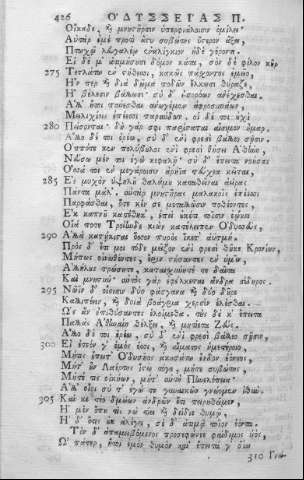 426 ΟΔΥΣΣΕΙΑΣ Π.
Οἴκαδε, καὶ μνηστῆρσιν ὑπερφιάλοισιν ὁμίλει·
Αὐτὰρ ἐμὲ προτὶ ἄστυ συβώτης ὕστερον ἄξει,
Πτωχῷ λευγαλέῳ ἐναλίγκιον ἠδὲ γέροντι.
Εἰ δέ μ' ἀτιμήσουσι δόμον κάτα, σὸν δὲ φίλον κῆρ
275 Τετλάτω ἐν στήθεσσι, κακῶς πάσχοντος ἐμεῖο,
Ἤν περ καὶ διὰ δῶμα ποδῶν ἕλκωσι θύραζε,
Ἢ βέλεσιν βάλλωσι· σὺ δ' εἰσορόων ἀνέχεσθαι.
Ἀλλ' ἤτοι παύεσθαι ἀνωγέμεν ἀφροσυνάων,
Μειλιχίοις ἐπέεσσι παραυδῶν· οἱ δέ τοι οὐχὶ
280 Πείσονται· δὴ γάρ σφι παρίσταται αἴσιμον ἦμαρ.
Ἄλλο δέ τοι ἐρέω, σὺ δ' ἐνὶ φρεσὶ βάλλεο σῇσιν.
Ὁππότε κεν πολύβουλος ἐνὶ φρεσὶ θῇσιν Ἀθήνη,
Νεύσω μέν τοι ἐγὼ κεφαλῇ· σὺ δ' ἔπειτα νοήσας
Ὅσσα τοι ἐν μεγάροισιν ἀρήϊα τεύχεα κεῖται,
285 Ἐς μυχὸν ὑψηλοῦ θαλάμου καταθεῖναι ἀείρας
Πάντα μάλ'· αὐτὰρ μνηστῆρας μαλακοῖς ἐπέεσσι
Παρφάσθαι, ὅτε κέν σε μεταλλῶσιν ποθέοντες·
Ἐκ καπνοῦ κατέθηκ', ἐπεὶ οὐκέτι τοῖσιν ἐῴκει
Οἷά ποτε Τροίηνδε κιὼν κατέλειπεν Ὀδυσσεύς,
290 Ἀλλὰ κατῄκισται ὅσσον πυρὸς ἵκετ' ἀϋτμή.
Πρὸς δ' ἔτι μοι τόδε μεῖζον ἐνὶ φρεσὶ θῆκε Κρονίων,
Μήπως οἰνωθέντες, ἔριν στήσαντες ἐν ὑμῖν,
Ἀλλήλους τρώσητε, καταισχύνητέ τε δαῖτα
Καὶ μνηστύν· αὐτὸς γὰρ ἐφέλκεται ἄνδρα σίδηρος.
295 Νῶϊν δ' οἴοισιν δύο φάσγανα καὶ δύο δοῦρε
Καλλιπέειν, καὶ δοιὰ βοάγρια χερσὶν ἑλέσθαι.
Ὡς ἂν ἐπιθύσαντες ἑλοίμεθα. τοὺς δέ κ' ἔπειτα
Παλλὰς Ἀθηναίη θέλξει, καὶ μητίετα Ζεύς.
Ἄλλο δέ τοι ἐρέω, σὺ δ' ἐνὶ φρεσὶ βάλλεο σῇσιν,
300 Εἰ ἐτεόν γ' ἐμός ἐσσι, καὶ αἵματος ἡμετέροιο,
Μήτις ἔπειτ' Ὀδυσῆος ἀκουσάτω ἔνδον ἐόντος,
Μήτ' οὖν Λαέρτης ἴστω τόγε, μήτε συβώτης,
Μήτε τις οἰκήων, μήτ' αὐτὴ Πηνελόπεια·
Ἀλλ' οἶοι σύ τ' ἐγώ τε γυναικῶν γνώομεν ἰθύν.
305 Καί κέ τεο δμώων ἀνδρῶν ἔτι πειρηθεῖμεν,
Ἠ' μὲν ὅπου τις νῶϊ τίει καὶ δείδιε θυμῷ,
Ἠ' δ' ὅτις οὐκ ἀλέγει, σὲ δ' ἀτιμᾷ τοῖον ἐόντα.
Τὸν δ' ἀπαμειβόμενος προσεφώνεε φαίδιμος υἱός,
Ὦ πάτερ, ἤτοι ἐμὸν θυμὸν καὶ ἔπειτά γ' ὀΐω
310 Γνώ-